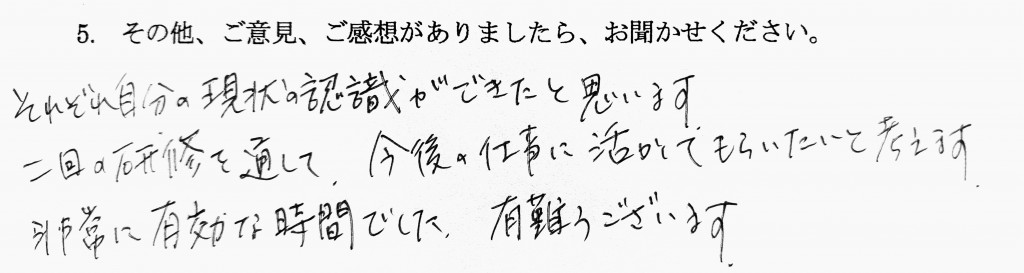 5. その他、ご意見、ご感想がありましたら、お聞かせください。
それぞれ自分の現状の認識ができたと思います
二回の研修を通して、今後の仕事に活かしてもらいたいと考えます、
非常に有効な時間でした、有難うございます、